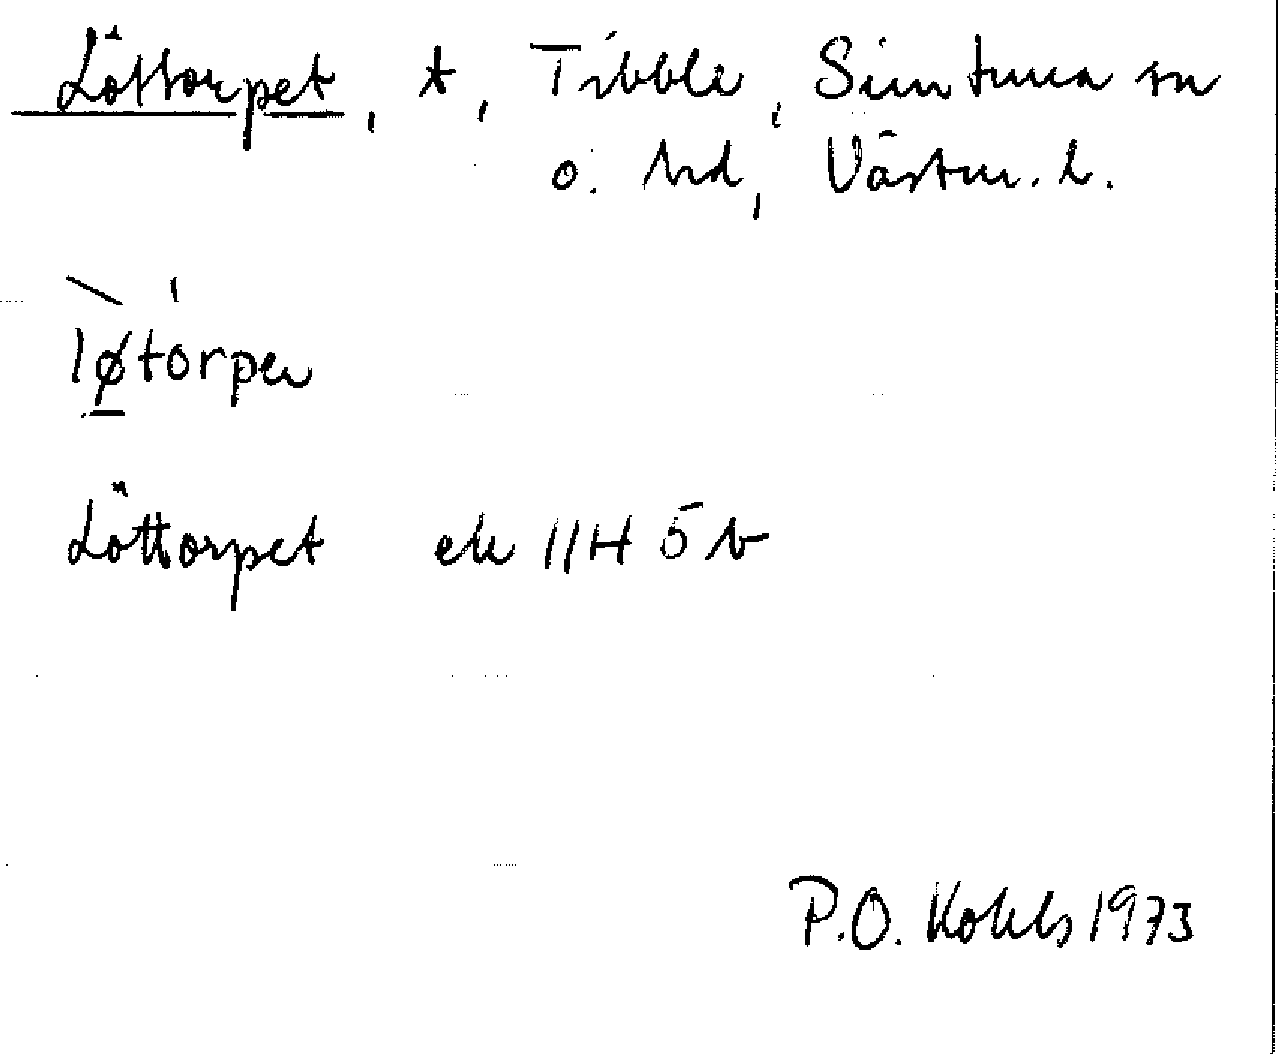 Löttorpet, t, Tibble, Simtuna sn
o. hd, Västm. l.
løtorpeɹ
Löttorpet ek 11H 5b
P.O. Kohls 1973